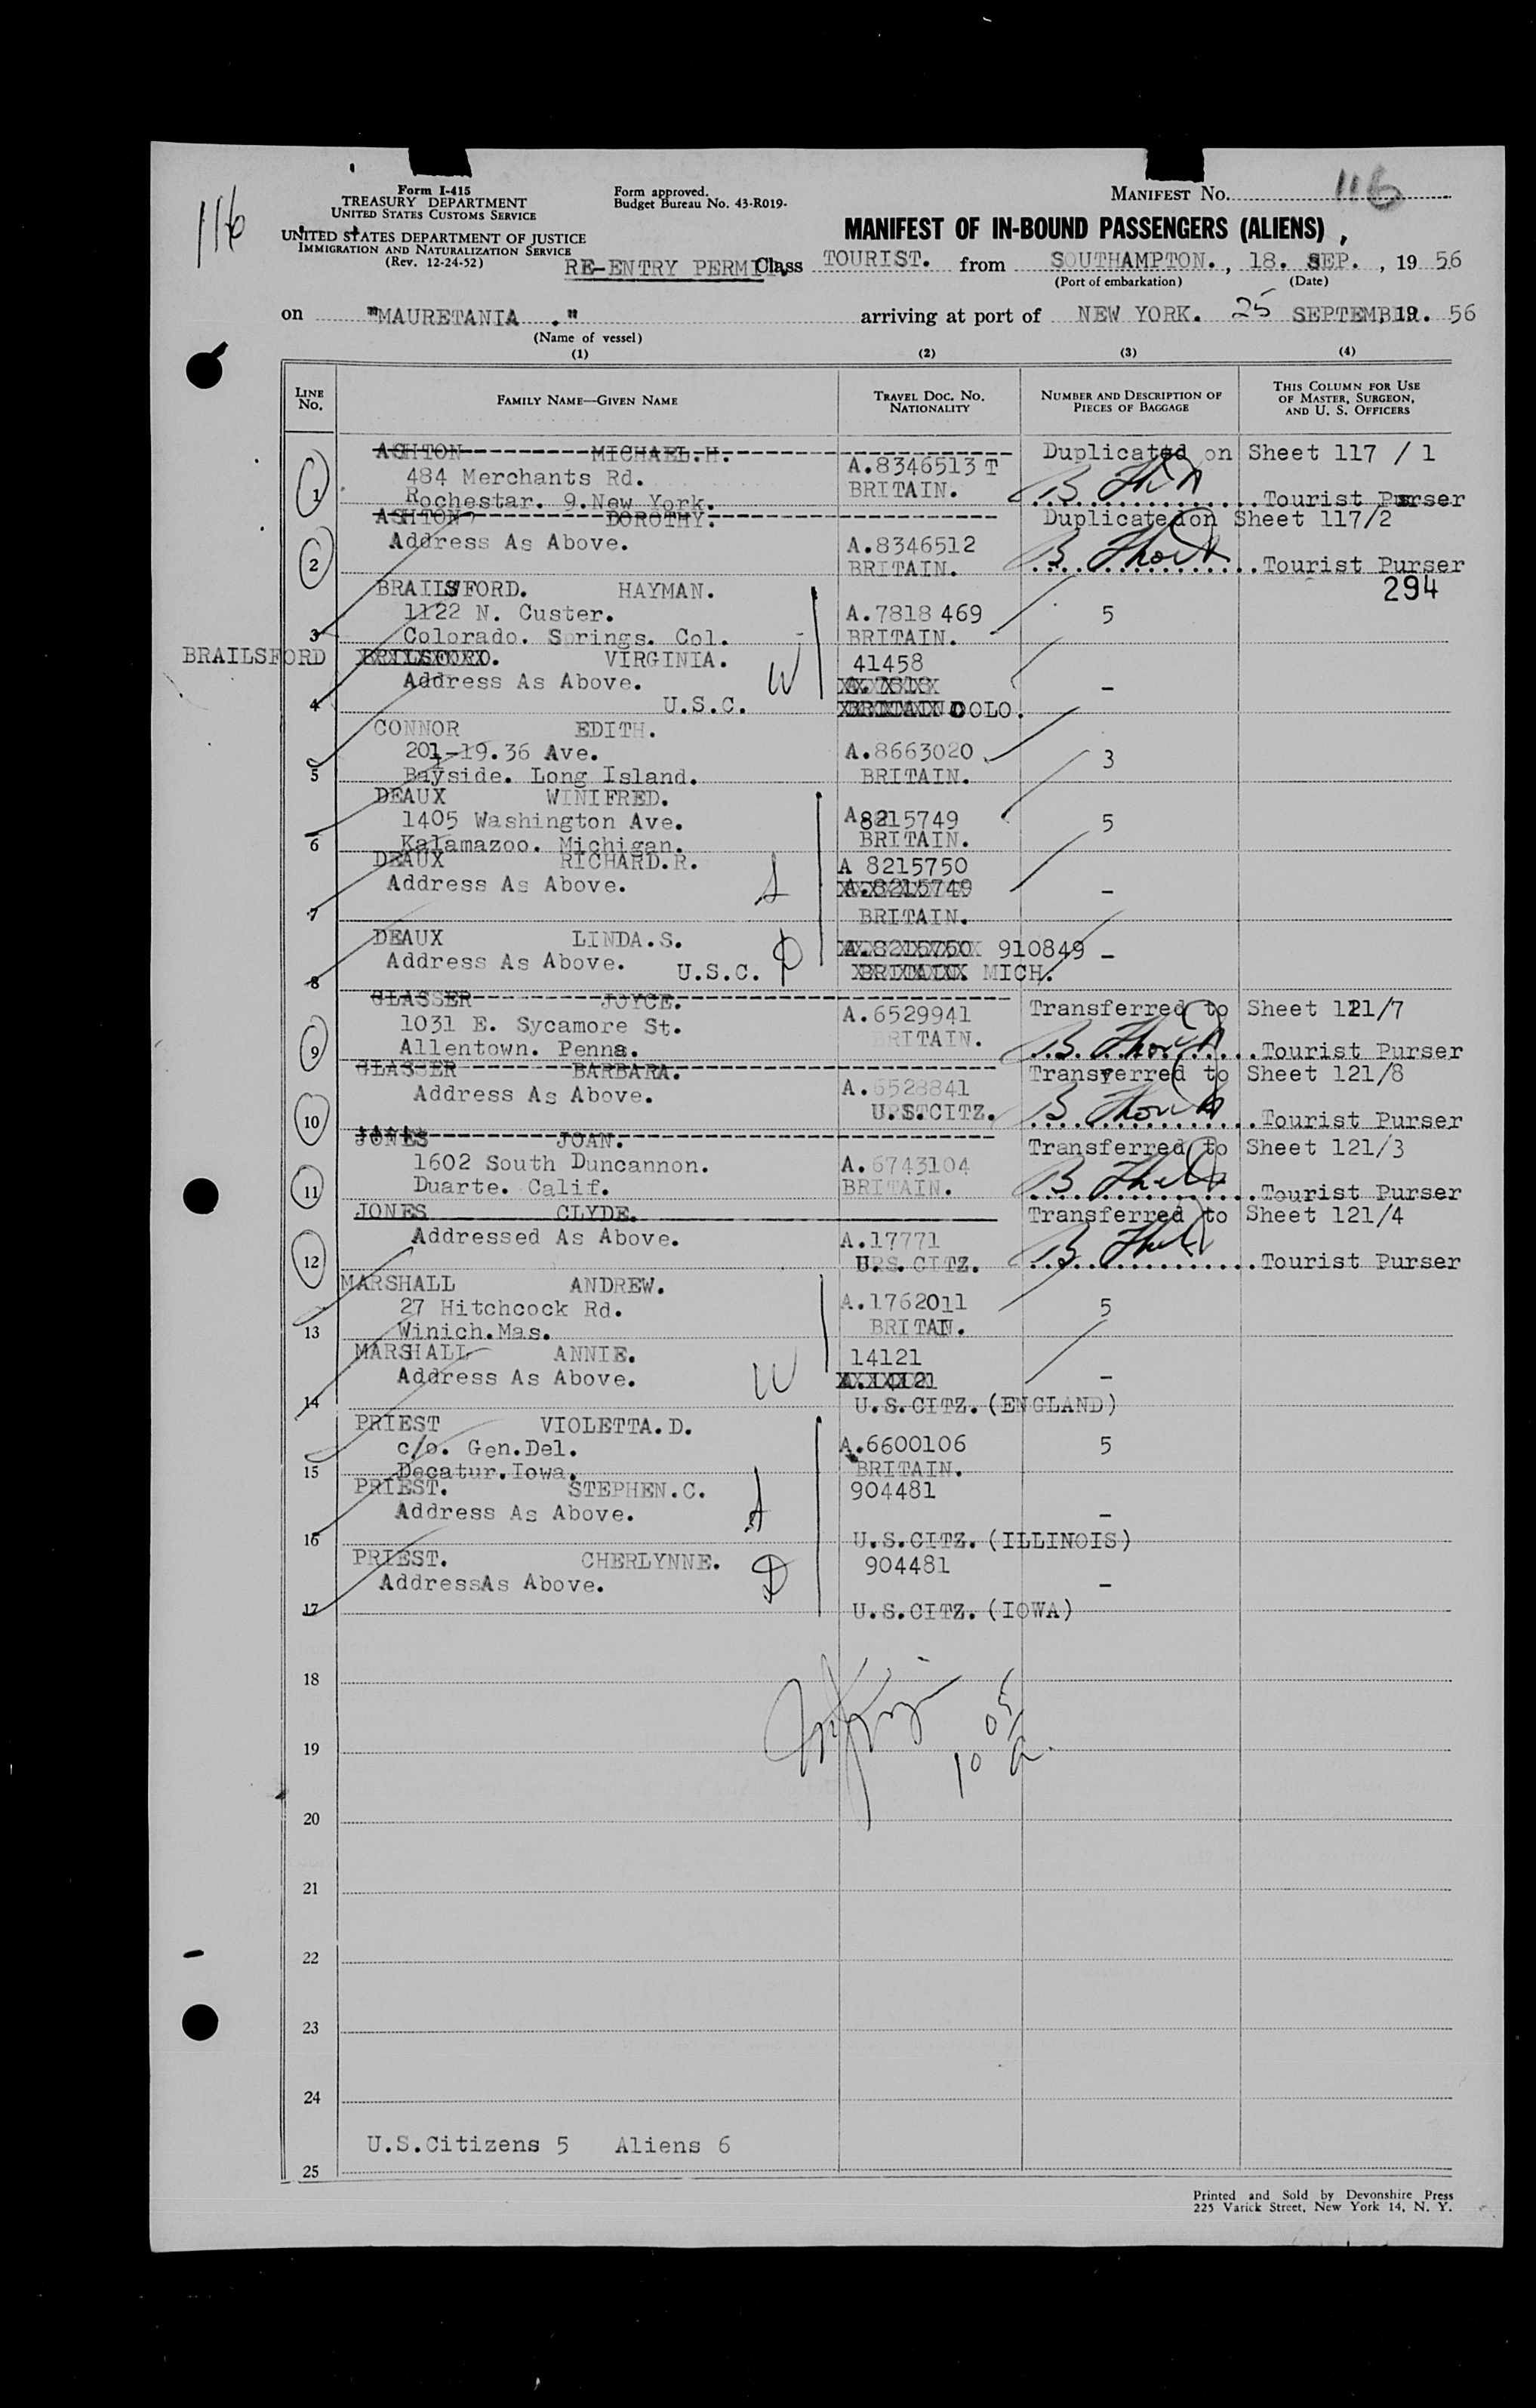 116
Form I-415
TREASURY DEPARTMENT
UNITED STATES CUSTOMS SERVICE
UNITED STATES DEPARTMENT OF JUSTICE
IMMIGRATION AND NATURALIZATION SERVICE
(Rev. 12-24-52)
Form approved.
Budget Bureau No. 43-R019-
MANIFEST No. 116
MANIFEST OF IN-BOUND PASSENGERS (ALIENS)
RE-ENTRY PERMIT. Class TOURIST. from SOUTHAMPTON., 18. SEP., 19 56
(Port of embarkation) (Date)
on "MAURETANIA ." arriving at port of NEW YORK. 25 SEPTEMBER. 19 56
(Name of vessel)
(1) (2) (3) (4)
LINE No. FAMILY NAME—GIVEN NAME TRAVEL DOC. NO. NATIONALITY NUMBER AND DESCRIPTION OF PIECES OF BAGGAGE THIS COLUMN FOR USE OF MASTER, SURGEON, AND U. S. OFFICERS
ASHTON MICHAEL.H. Duplicated on Sheet 117 / 1
484 Merchants Rd. A.8346513 T
1 Rochestar. 9.New York. BRITAIN. Tourist Purser
ASHTON DOROTHY. Duplicated on Sheet 117/2
Address As Above. A.8346512
2 BRITAIN. Tourist Purser
294
BRAILSFORD. HAYMAN.
1122 N. Custer. A.7818 469 5
3 Colorado. Springs. Col. BRITAIN.
BRAILSFORD VIRGINIA. W 41458
Address As Above. A.7818 -
4 U.S.C. BRITAIN COLO.
CONNOR EDITH.
201-19.36 Ave. A.8663020 3
5 Bayside. Long Island. BRITAIN.
DEAUX WINIFRED.
1405 Washington Ave. A8215749 5
6 Kalamazoo. Michigan. BRITAIN.
DEAUX RICHARD.R. A 8215750
Address As Above. A.8215749 -
7 BRITAIN.
DEAUX LINDA.S. D A.8215750 910849 -
8 Address As Above. U.S.C. BRITAIN. MICH.
GLASSER JOYCE. Transferred to Sheet 121/7
1031 E. Sycamore St. A.6529941
9 Allentown. Penna. BRITAIN. Tourist Purser
GLASSER BARBARA. Transferred to Sheet 121/8
Address As Above. A.6528841
10 U.S.CITZ. Tourist Purser
JONES JOAN. Transferred to Sheet 121/3
1602 South Duncannon. A.6743104
11 Duarte. Calif. BRITAIN. Tourist Purser
JONES CLYDE. Transferred to Sheet 121/4
Addressed As Above. A.17771
12 U.S. CITZ. Tourist Purser
MARSHALL ANDREW.
27 Hitchcock Rd. A.1762011 5
13 Winich.Mas. BRITAIN.
MARSHALL ANNIE. W 14121
Address As Above. A.14121 -
14 U.S.CITZ.(ENGLAND)
PRIEST VIOLETTA.D.
c/o. Gen.Del. A.6600106 5
15 Decatur.Iowa. BRITAIN.
PRIEST. STEPHEN.C. 904481
Address As Above. -
16 U.S.CITZ.(ILLINOIS)
PRIEST. CHERLYNNE. D 904481
AddressAs Above. -
17 U.S.CITZ.(IOWA)
18
19
10 05 a.
20
21
22
23
24
U.S.Citizens 5 Aliens 6
25
Printed and Sold by Devonshire Press
225 Varick Street, New York 14, N. Y.